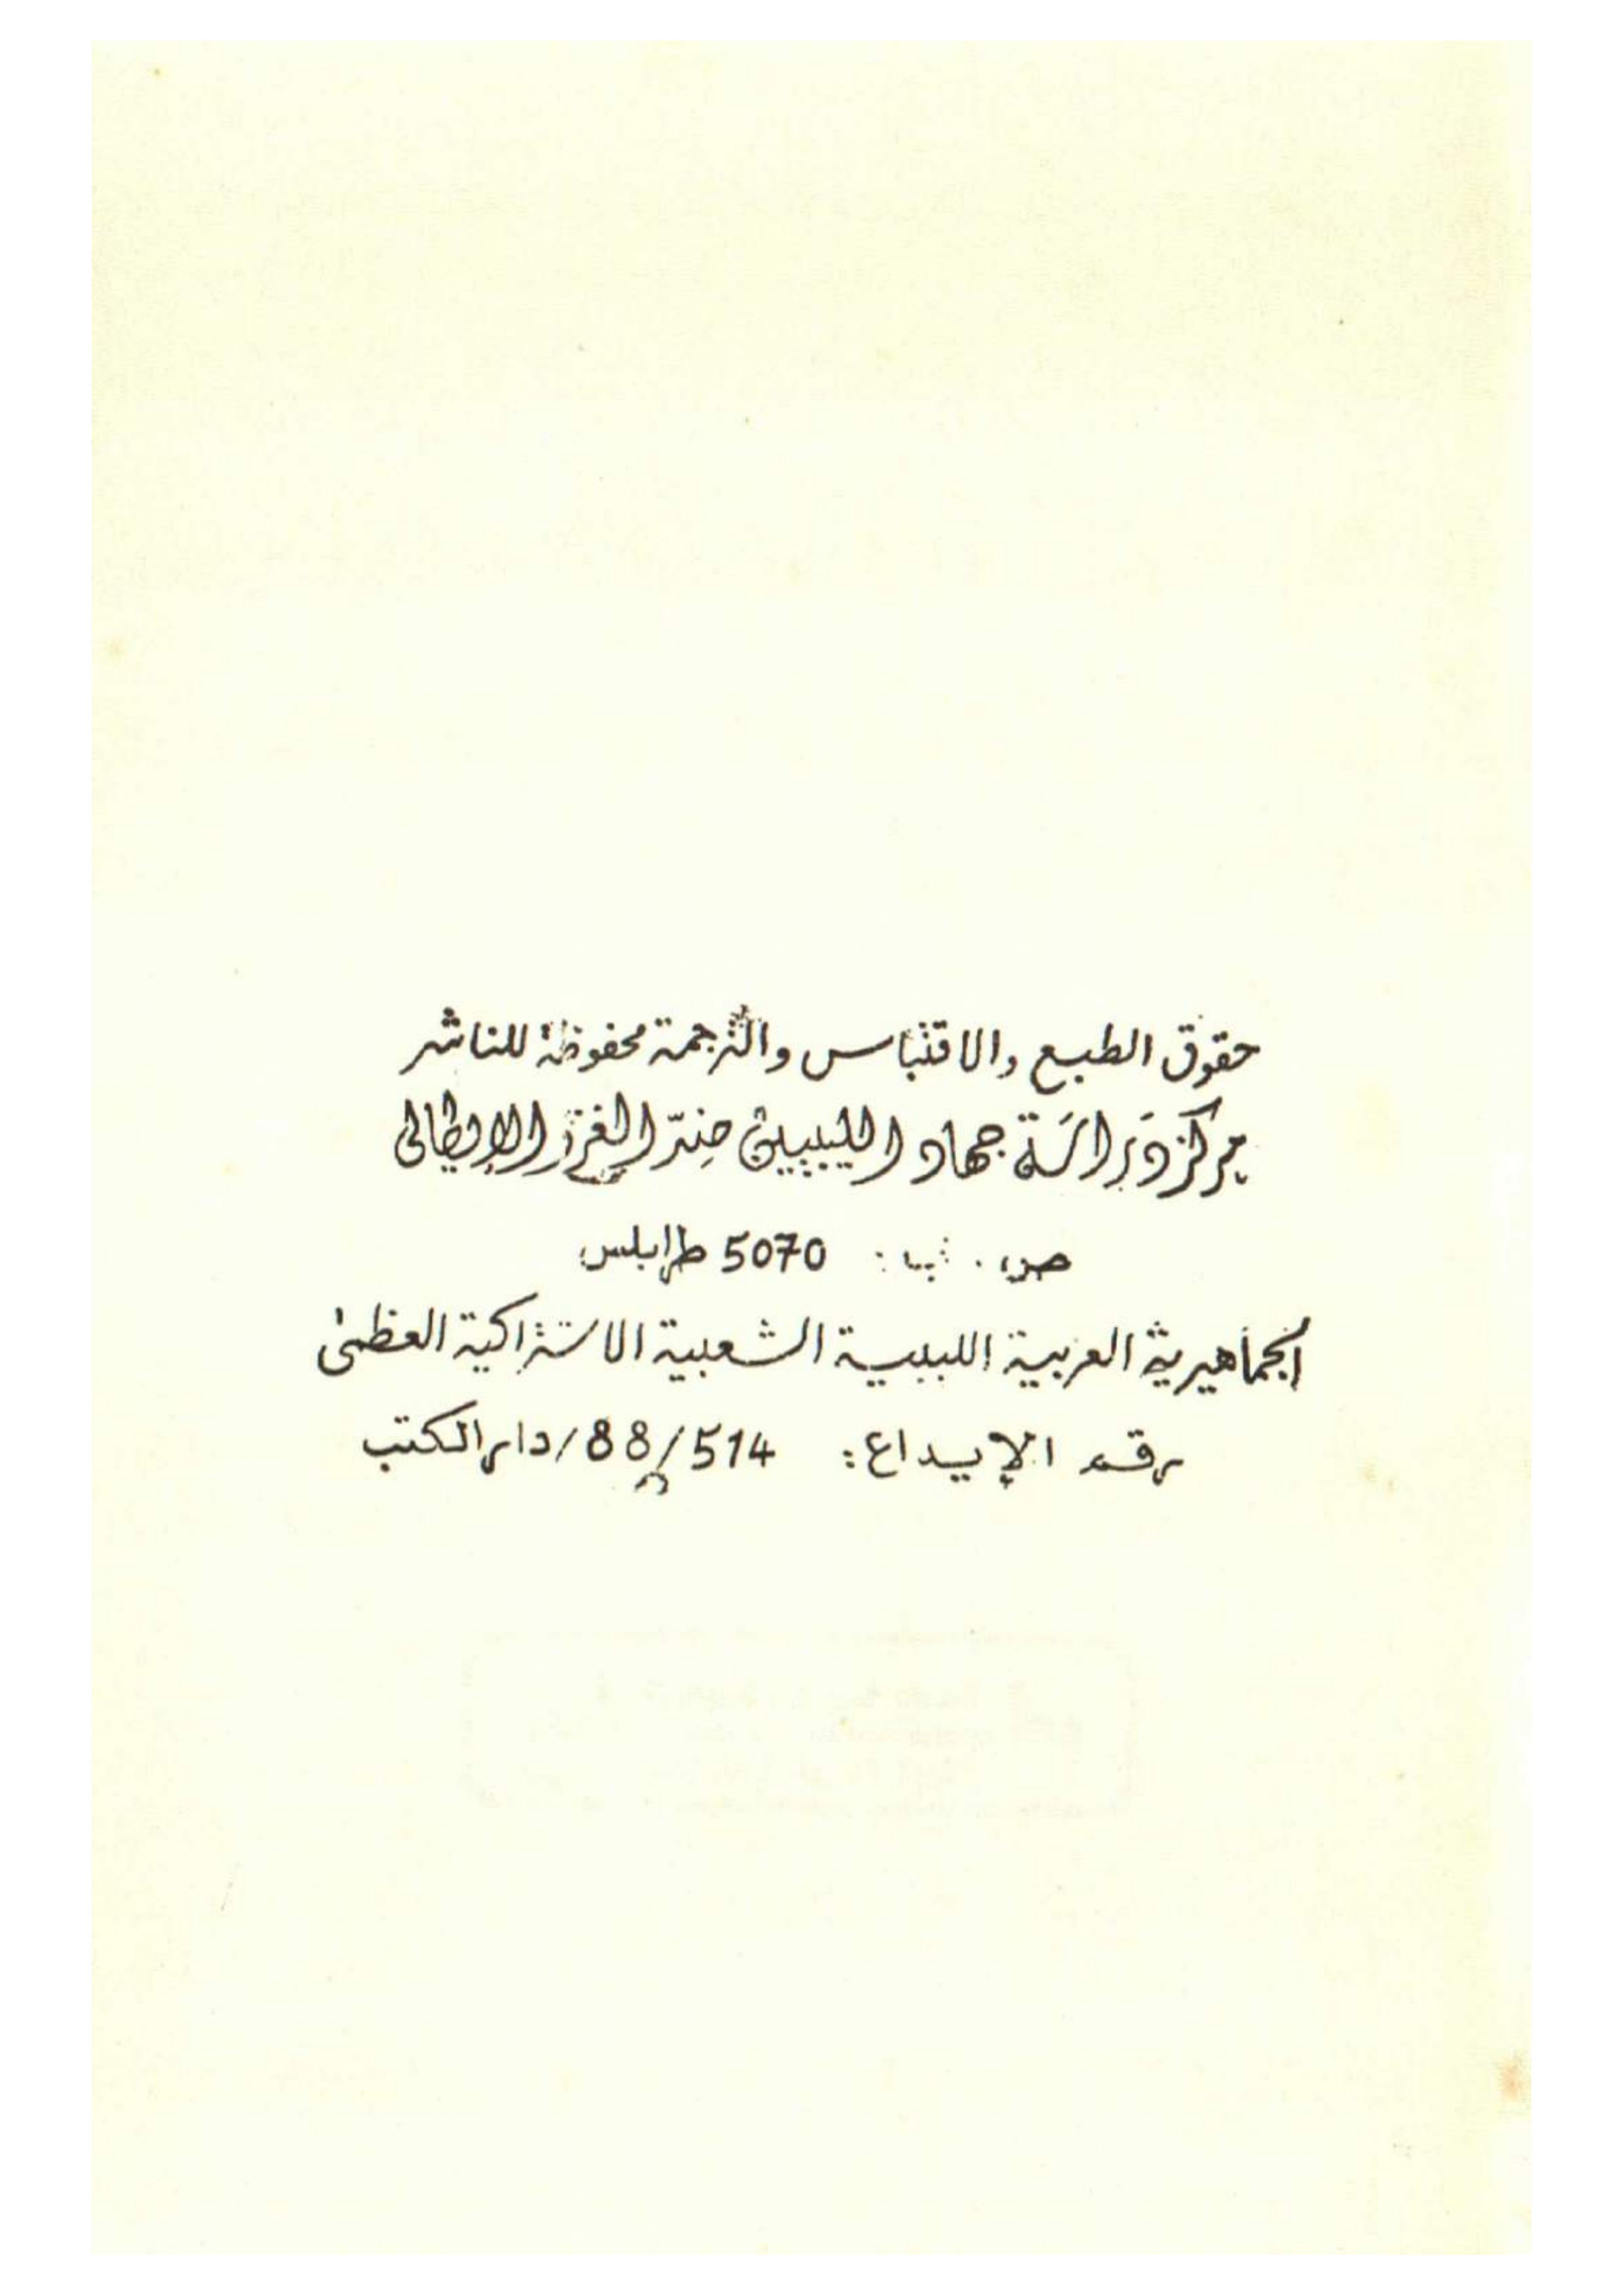 حقوق الطبع والاقتباس والترجمة محفوظة للناشر
مركز دراسة جهاد الليبيين ضد الغزو الإيطالي
ص . ب : 5070 طرابلس
الجماهيرية العربية الليبية الشعبية الاشتراكية العظمى
رقم الإيداع : 514/88/دار الكتب